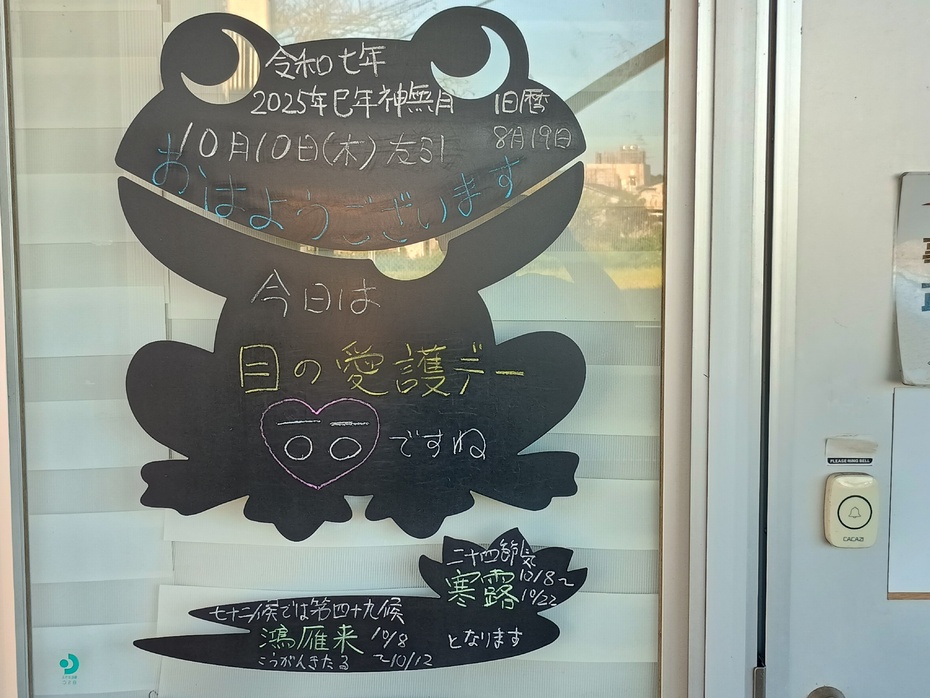 令和七年
2025年巳年神無月 旧暦
10月10日(木)友引 8月19日
おはようございます
今日は
目の愛護デー
ですね
二十四節気
寒露 10/8~
10/22
七十二候では第四十九候
鴻雁来 10/8 となります
こうがんきたる ~10/12
PLEASE RING BELL
CACAZI